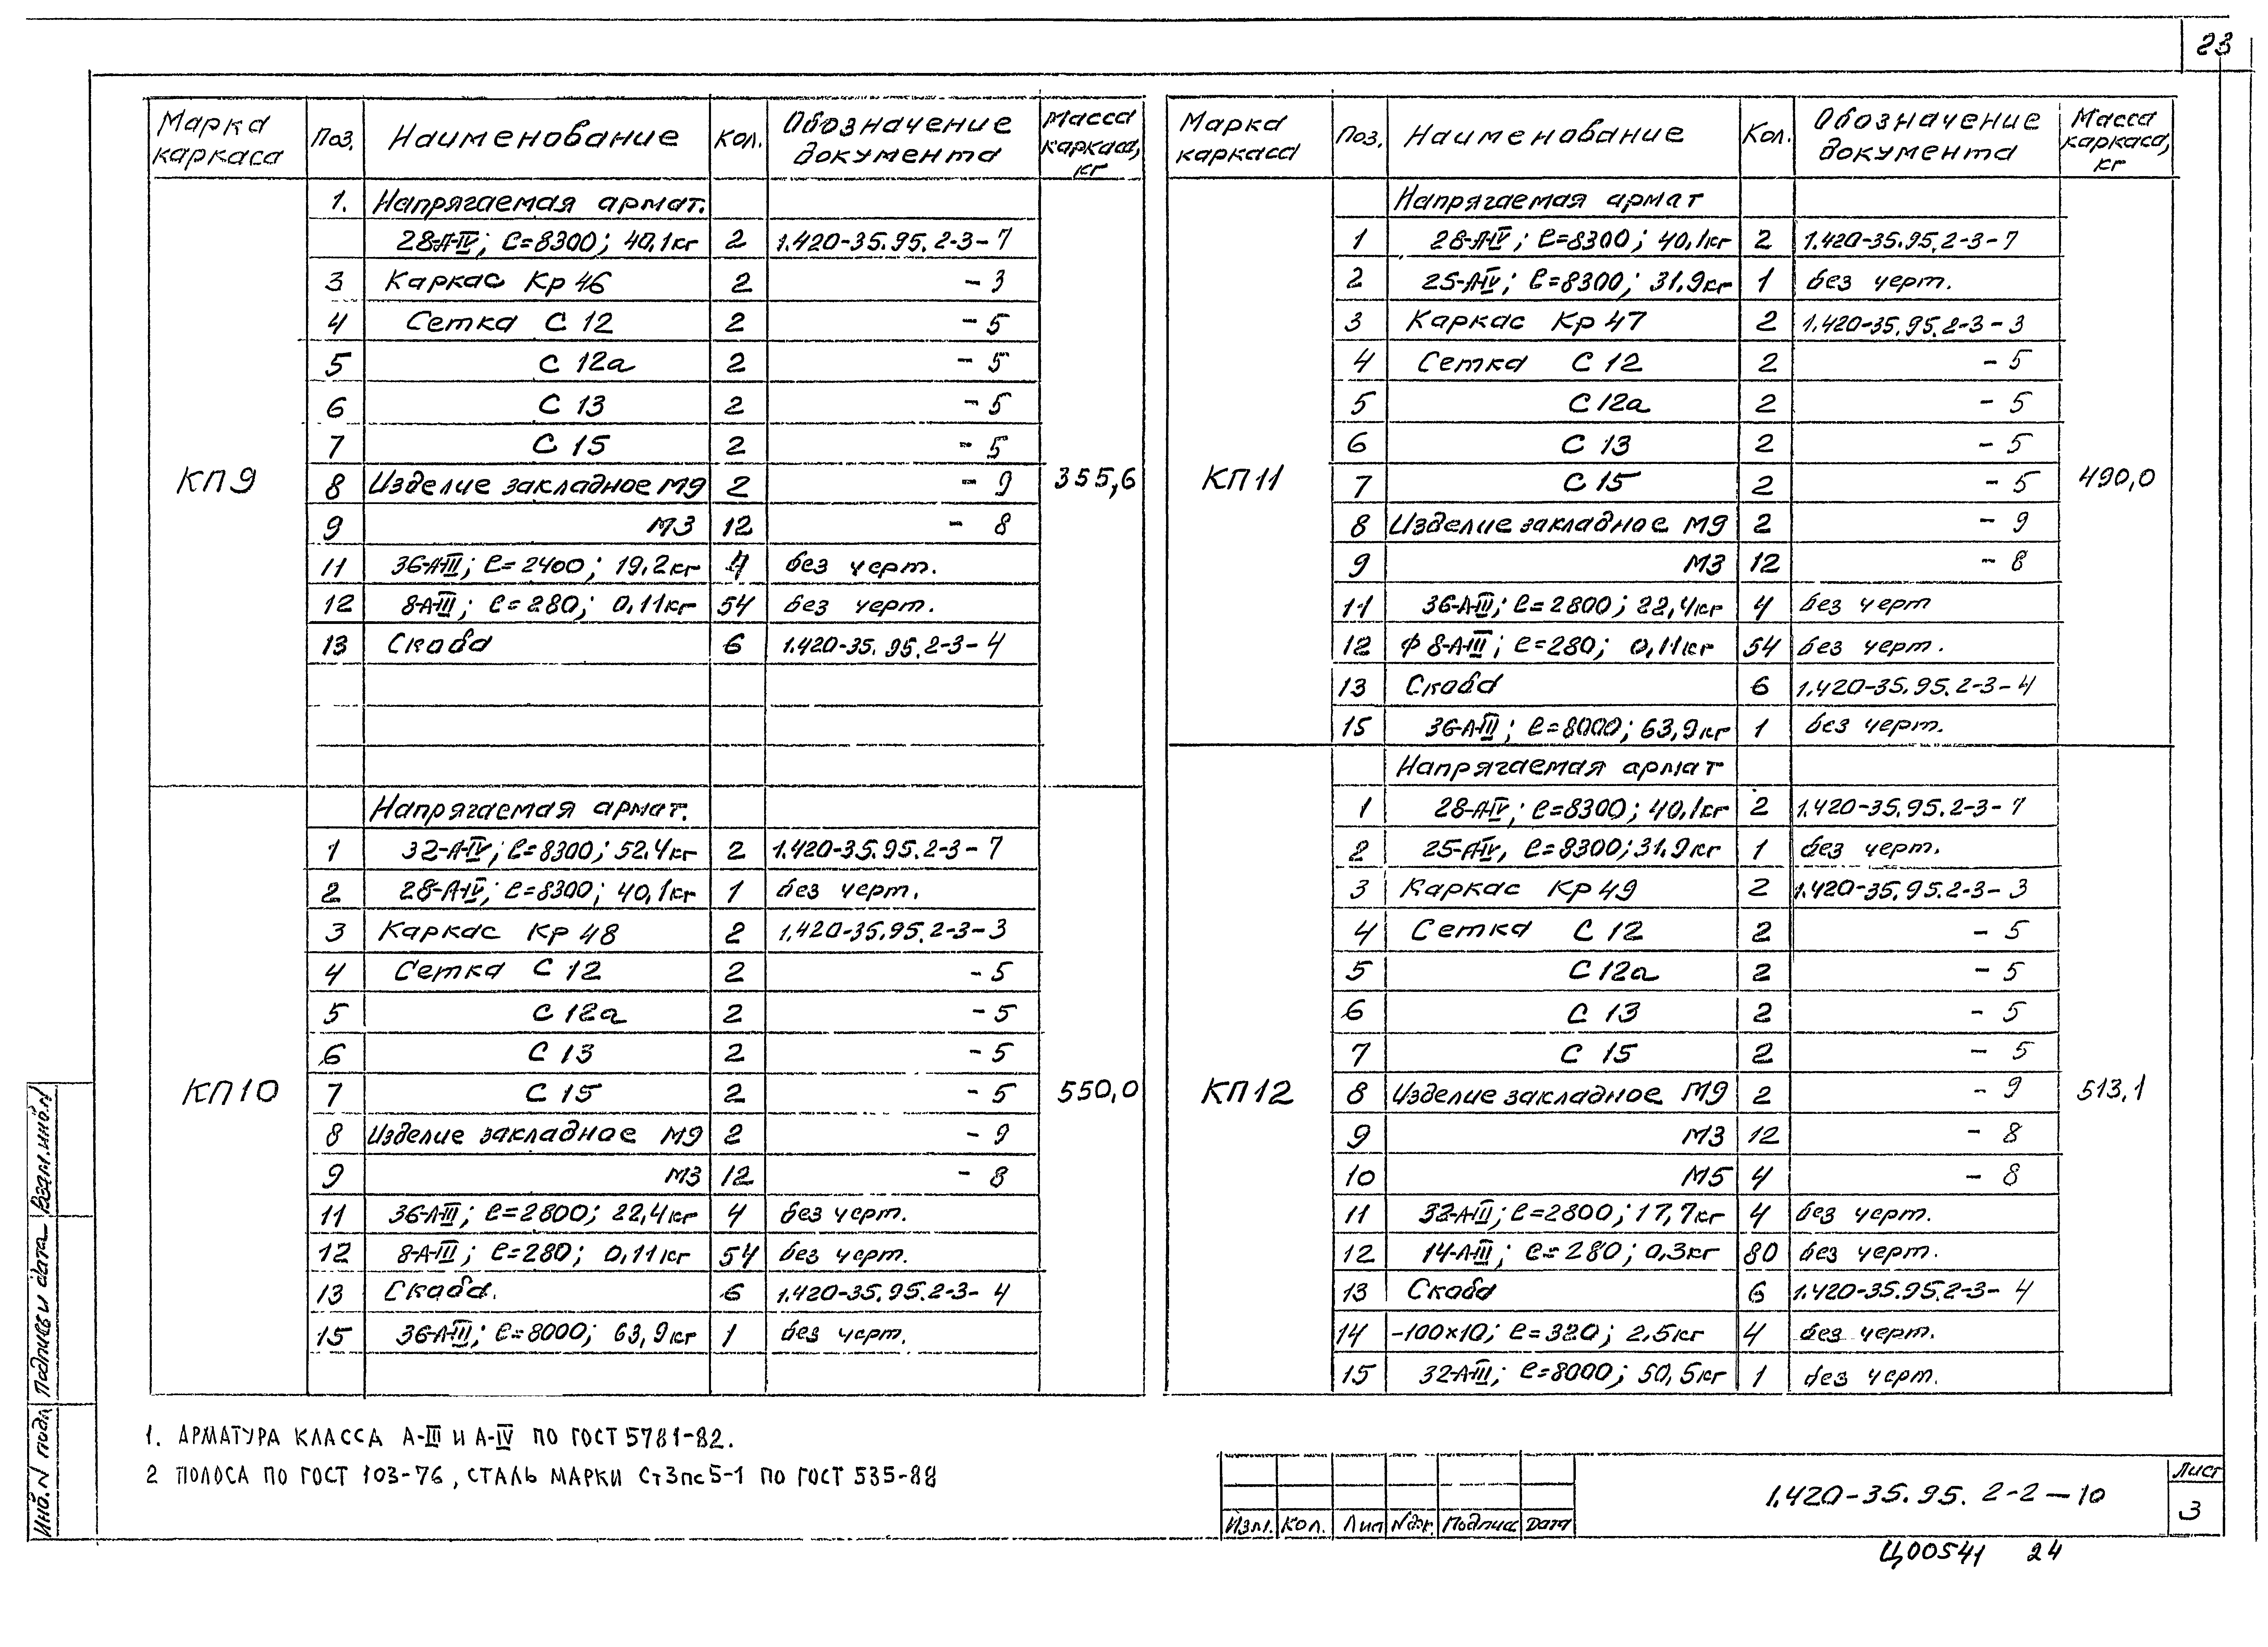 23
Марка каркаса Поз. Наименование Кол. Обозначение документа Масса каркаса, кг
КП9 355,6
1. Напрягаемая армат.
28-А-IV; ℓ=8300; 40,1кг 2 1.420-35.95.2-3-7
3 Каркас Кр46 2 -3
4 Сетка С 12 2 -5
5 С 12а 2 -5
6 С 13 2 -5
7 С 15 2 -5
8 Изделие закладное М9 2 -9
9 М3 12 -8
11 36-А-III; ℓ=2400; 19,2кг 4 без черт.
12 8-А-III; ℓ=280; 0,11кг 54 без черт.
13 Скоба 6 1.420-35.95.2-3-4
КП10 550,0
Напрягаемая армат.
1 32-А-IV; ℓ=8300; 52,4кг 2 1.420-35.95.2-3-7
2 28-А-IV; ℓ=8300; 40,1кг 1 без черт.
3 Каркас Кр48 2 1.420-35.95.2-3-3
4 Сетка С 12 2 -5
5 С 12а 2 -5
6 С 13 2 -5
7 С 15 2 -5
8 Изделие закладное М9 2 -9
9 М3 12 -8
11 36-А-III; ℓ=2800; 22,4кг 4 без черт.
12 8-А-III; ℓ=280; 0,11кг 54 без черт.
13 Скоба. 6 1.420-35.95.2-3-4
15 36-А-III; ℓ=8000; 63,9кг 1 без черт.
Марка каркаса Поз. Наименование Кол. Обозначение документа Масса каркаса, кг
КП11 490,0
Напрягаемая армат
1 28-А-IV; ℓ=8300; 40,1кг 2 1.420-35.95.2-3-7
2 25-А-IV; ℓ=8300; 31,9кг 1 без черт.
3 Каркас Кр47 2 1.420-35.95.2-3-3
4 Сетка С 12 2 -5
5 С 12а 2 -5
6 С 13 2 -5
7 С 15 2 -5
8 Изделие закладное М9 2 -9
9 М3 12 -8
11 36-А-III; ℓ=2800; 22,4кг 4 без черт
12 Ф 8-А-III; ℓ=280; 0,11кг 54 без черт.
13 Скоба 6 1.420-35.95.2-3-4
15 36-А-III; ℓ=8000; 63,9кг 1 без черт.
КП12 513,1
Напрягаемая армат
1 28-А-IV; ℓ=8300; 40,1кг 2 1.420-35.95.2-3-7
2 25-А-IV, ℓ=8300; 31.9кг 1 без черт.
3 Каркас Кр49 2 1.420-35.95.2-3-3
4 Сетка С 12 2 -5
5 С 12а 2 -5
6 С 13 2 -5
7 С 15 2 -5
8 Изделие закладное М9 2 -9
9 М3 12 -8
10 М5 4 -8
11 32-А-III; ℓ=2800; 17,7кг 4 без черт.
12 14-А-III; ℓ=280; 0,3кг 80 без черт.
13 Скоба 6 1.420-35.95.2-3-4
14 -100×10; ℓ=320; 2,5кг 4 без черт.
15 32-А-III; ℓ=8000; 50,5кг 1 без черт.
1. АРМАТУРА КЛАССА А-III И А-IV ПО ГОСТ 5781-82.
2 ПОЛОСА ПО ГОСТ 103-76, СТАЛЬ МАРКИ Ст3пс5-1 ПО ГОСТ 535-88
Инв. N подл
Подпись и дата
Взам. инв. N
Изм. Кол. Лист Nдок. Подпись Дата
1.420-35.95.2-2-10
Лист
3
Ц00541 24